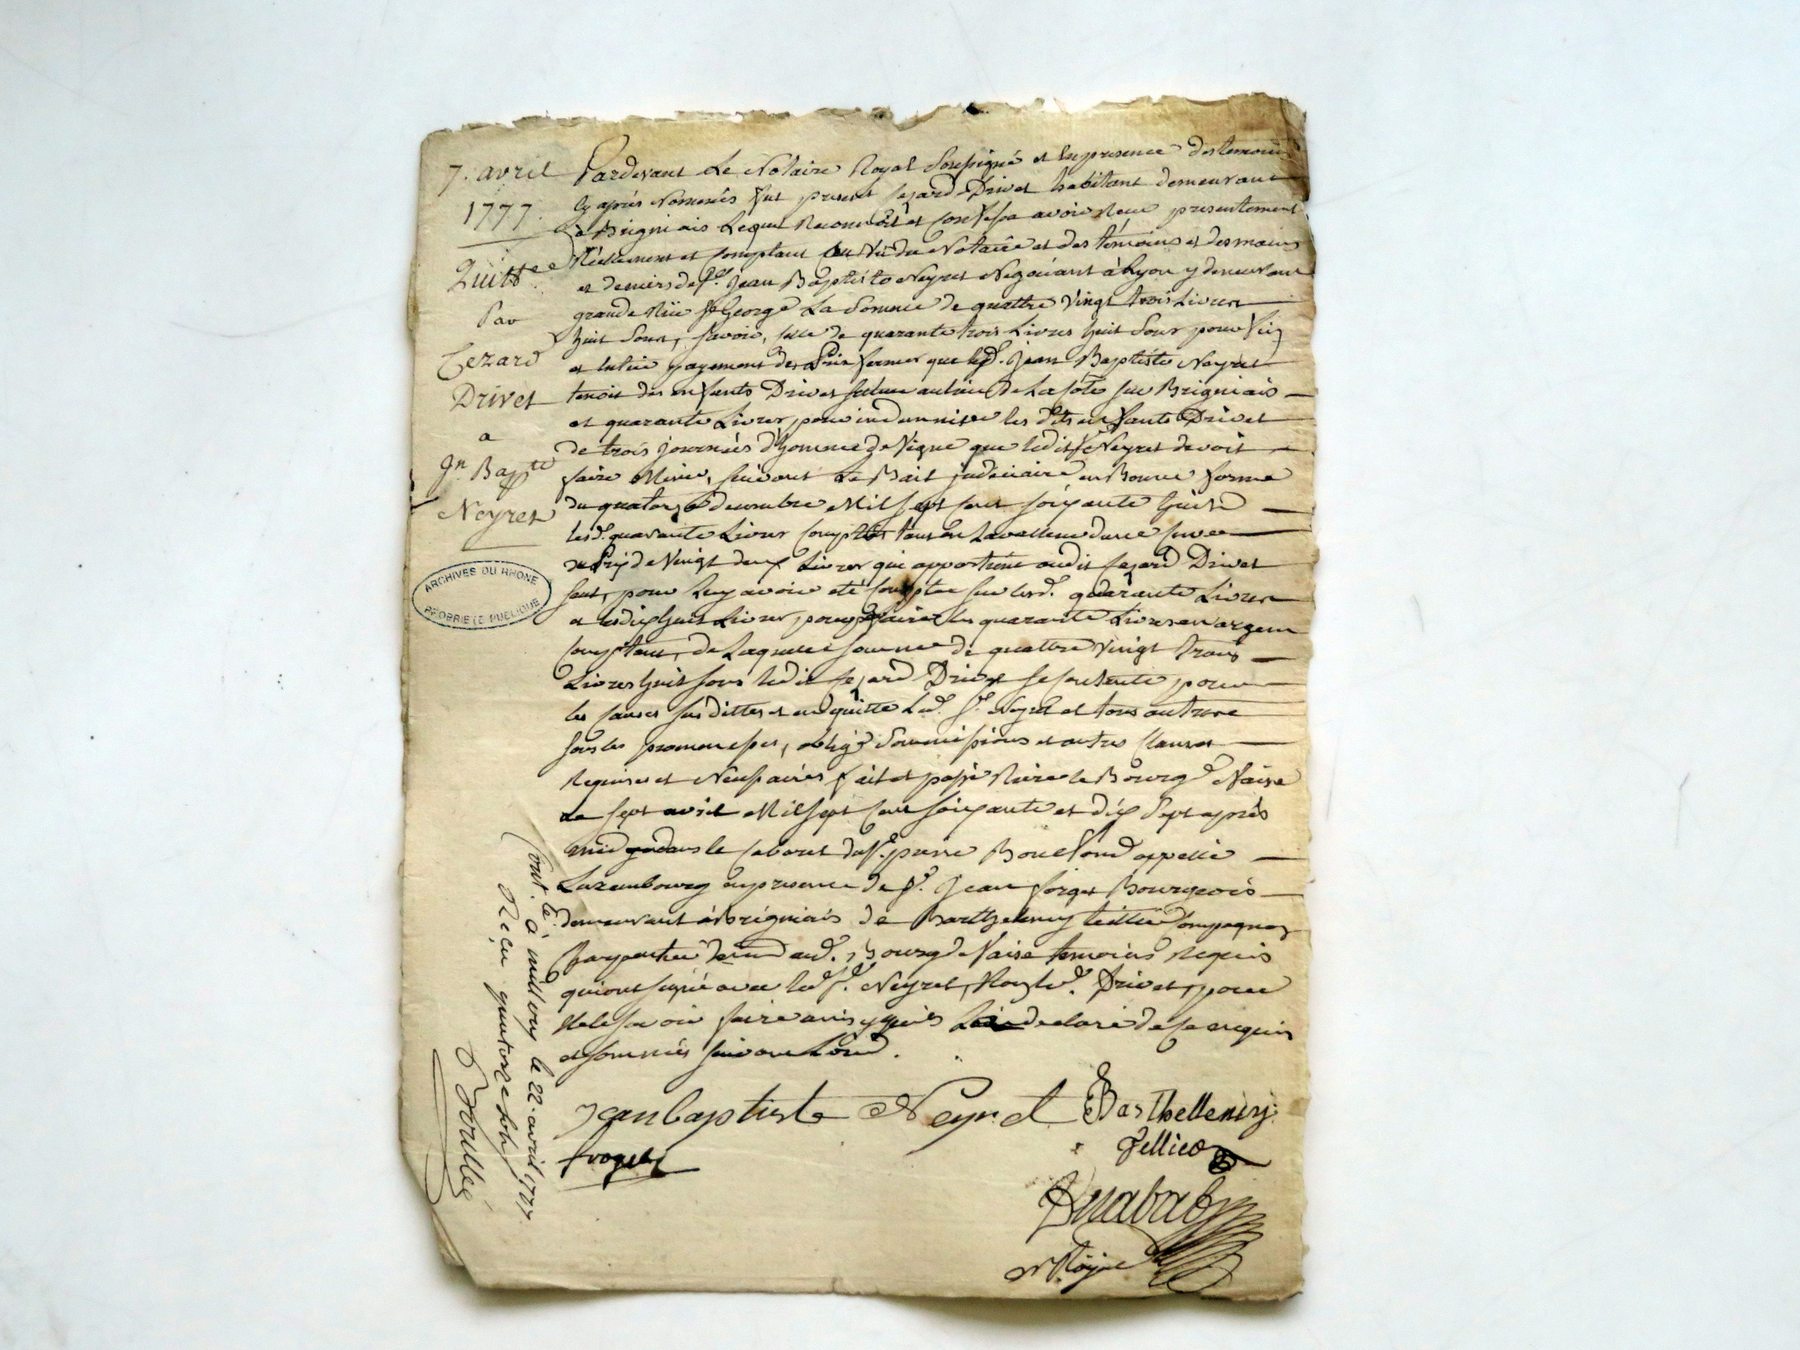 7. avril
1777.
Quitt.ce
Par
Cezard
Drivet
a
Jn Bapte
Neyret
ARCHIVES DU RHONE
PROPRIETE PUBLIQUE
Pardevant Le Notaire Royal Soussigné et en presence des temoins
cy après Nommés fut present Cezard Drivet habitant demeurant
à Brigniais Lequel Reconnoit et confesse avoir Reçu presentement
Réellement et comptant au Vû du Notaire et des témoins et des mains
et deniers de Sr. Jean Baptiste Neyret Negociant à Lyon y demeurant
grande Rüe St George La Somme de quattre Vingt trois Livres
huit Sous, savoir, celle de quarante trois Livres huit Sous pour
et entier payement des Prix ferme que led. Sr. Jean Baptiste Neyret
tenoit des enfants Drivet au lieu de La Cote sur Brigniais
et quarante Livres, pour indemniser les dits enfants Drivet
de trois journées d'homme de Vigne que ledit Sr Neyret devoit
faire Miner, suivant Le Bail judiciaire en Bonne forme
du quatorze decembre Mil Sept cent soixante huit
lesd. quarante Livres comptées tant en La valleur d'une cuve
du Prix de Vingt deux Livres qui appartient audit Cezard Drivet
pour Luy avoir été comptée sur lesd. quarante Livres
et les dix huit Livres, pour faire les quarante Livres en argent
comptant, de Laquelle somme de quattre Vingt trois
Livres huit sous ledit Cezard Drivet se contente pour
les causes sus dittes et en quitte Led. Sr. Neyret et tous autres
sous les promesses, oblig. Soumissions et autres Clauses
Requises et Nécessaires fait et passé Rière le Bourg de Vaise
Le sept avril Mil Sept Cent soixante et dix Sept après
midy dans le Cabaret du Sr. pierre appellé
Luxembourg en presence de Sr. Jean Bourgeois
demeurant à Brigniais de Barthelemy Compagnon
Charpentier dem. aud. Bourg de Vaise temoins Requis
qui ont signé avec led. Sr. Neyret, Non led. Drivet, pour
Ne le savoir faire ainsy qu'il a declaré de ce enquis
et sommés suivant Lord.
Jean baptiste Neyret Barthellemy
froget Tellier
Cont. le. à mill ory le 22. avril 1777
Reçu quatorze sols